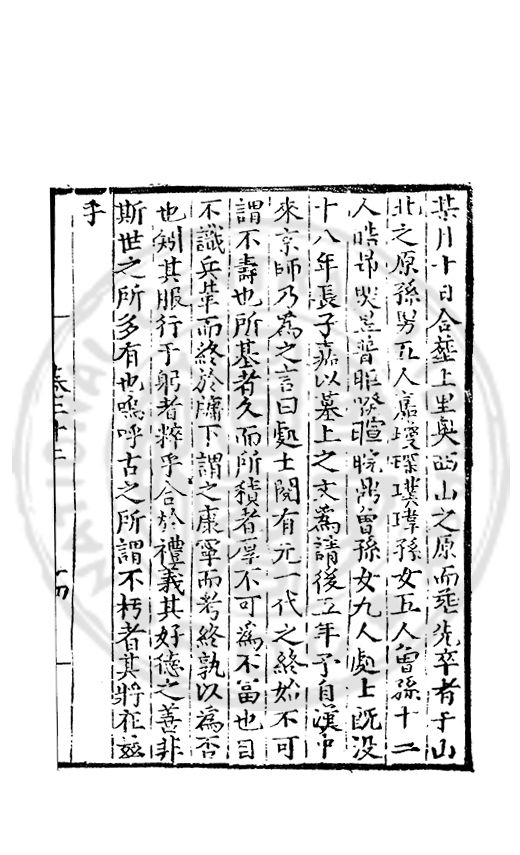 某月十日合葬上里奥西山之原而班先卒者于山
北之原孫男五人嘉璦琛璞瑋孫女五人曾孫十二
人晧昂昊昱普暄晥曾孫女九人處士既没
十八年長子嘉以墓上之文為請後五年予自漢中
來京師乃為之言曰處士閱有元一代之終始不可
謂不壽也所基者久而所積者厚不可為不富也目
不識兵革而終於牖下謂之康寧而考終孰以為否
也矧其服行于躬者粹乎合於禮義其好德之善非
斯世之所多有也嗚呼古之所謂不朽者其將在兹
乎
卷三十二